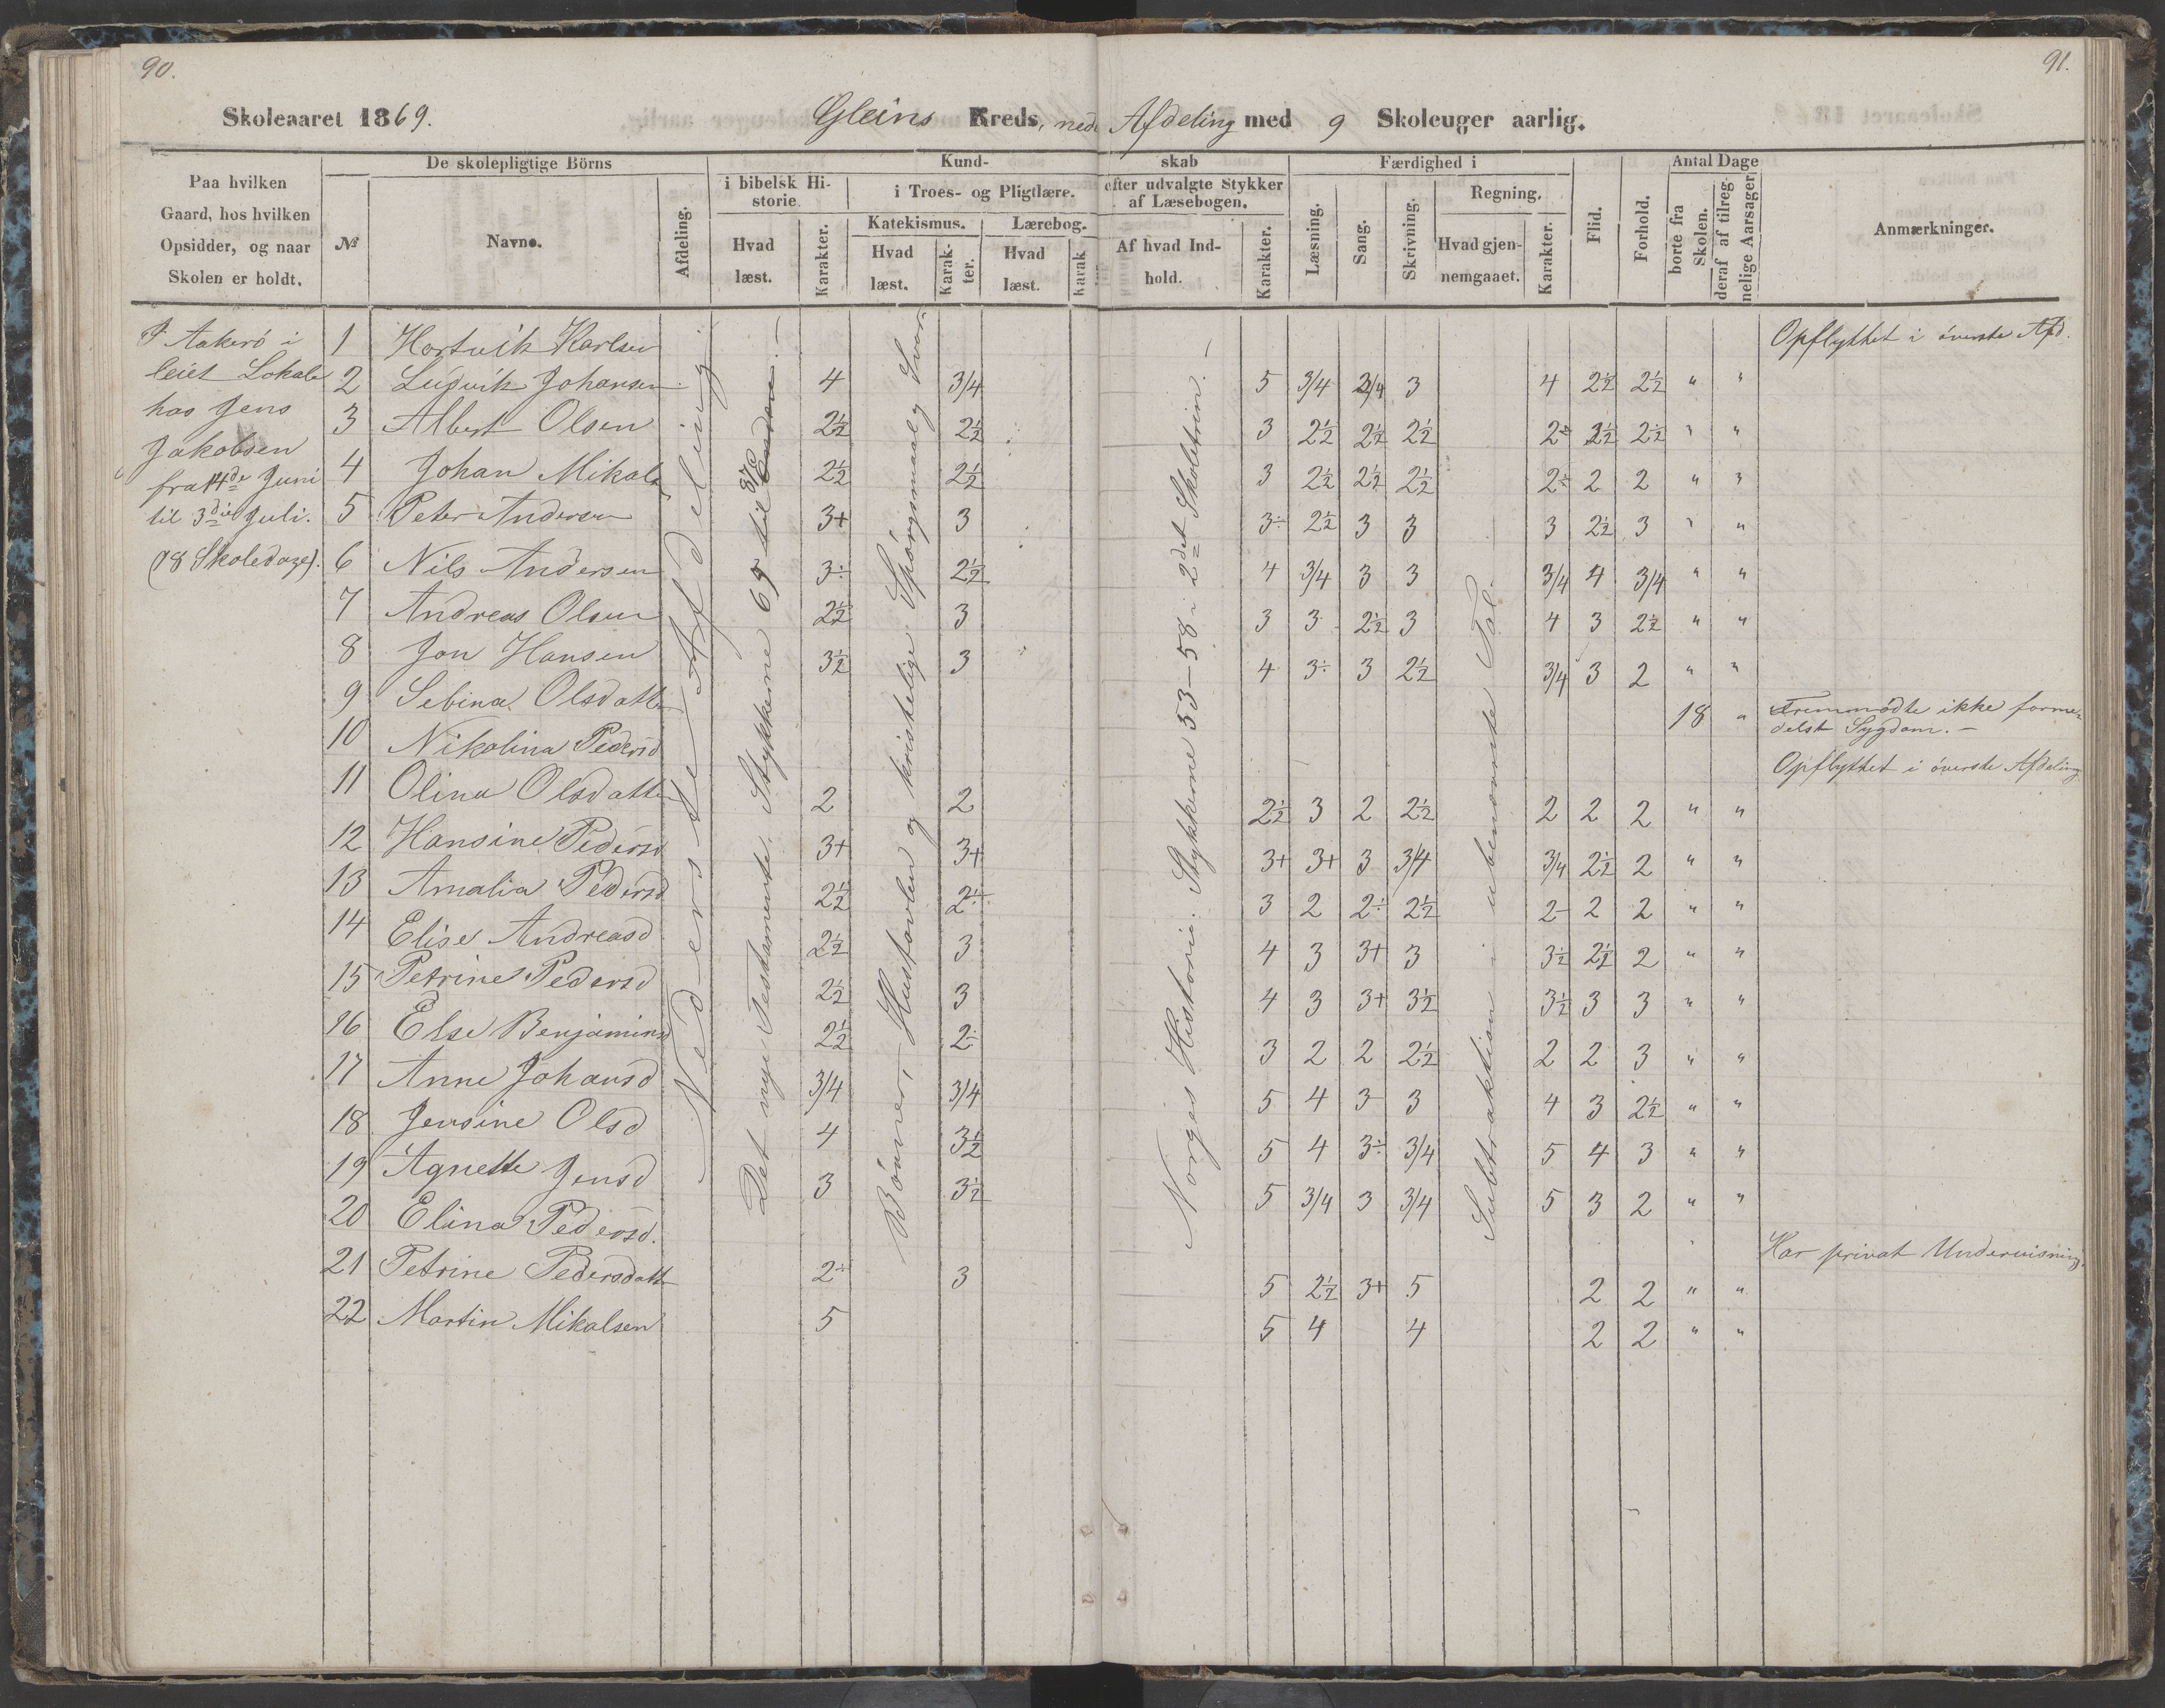 90.
91.
Skoleaaret 1869. Gleins Kreds, nede Afdeling med 9 Skoleuger aarlig.
Paa hvilken Gaard, hos hvilken Opsidder, og naar Skolen er holdt.
De skolepligtige Börns
№ Navne. Afdeling.
Kundskab
i bibelsk Historie. Hvad læst. Karakter.
i Troes- og Pligtlære.
Katekismus. Hvad læst. Karakter.
Lærebog. Hvad læst. Karak
efter udvalgte Stykker af Læsebogen.
Af hvad Indhold. Karakter.
Færdighed i
Læsning. Sang. Skrivning.
Regning. Hvad gjennemgaaet. Karakter.
Flid. Forhold.
Antal Dage
borte fra Skolen.
deraf af tilregnelige Aarsager.
Anmærkninger.
I Aakerö i
leiet Lokale
hos Jens
Jakobsen
fra 14de Juni
til 3die Juli.
(18 Skoledage).
Nederste Afdeling
Det nye Testamente. Stykkerne 65 til 87
Bönner, Hustavlen og kristelige Spörgsmaal og Svar
Norges Historie: Stykkerne 53-58 i 2det Skoletrin.
Subtraktion i ubenævnte Tal.
1 Hartvik Karlsen Opflyttet i överste Afd.
2 Ludvik Johansen 4 3/4 5 3/4 3/4 3 4 2½ 2½ " "
3 Albert Olsen 2½ 2½ 3 2½ 2½ 2½ 2÷ 2½ 2½ " "
4 Johan Mikals 2½ 2½ 3 2½ 2½ 2½ 2÷ 2 2 " "
5 Peter Andersen 3+ 3 3÷ 2½ 3 3 3 2½ 3 " "
6 Nils Andersen 3÷ 2½ 4 3/4 3 3 3/4 4 3/4 " "
7 Andreas Olsen 2½ 3 3 3 2½ 3 4 3 2½ " "
8 Jon Hansen 3½ 3 4 3÷ 3 2½ 3/4 3 2 " "
9 Sebina Olsdatter 18 " Fremmödte ikke formedelst Sygdom.
10 Nikolina Pedersd Opflyttet i överste Afdeling
11 Olina Olsdatter 2 2 2½ 3 2 2½ 2 2 2 " "
12 Hansine Pedersd 3+ 3+ 3+ 3+ 3 3/4 3/4 2½ 2 " "
13 Amalia Pedersd 2½ 2÷ 3 2 2÷ 2½ 2÷ 2 2 " "
14 Elise Andreasd 2½ 3 4 3 3+ 3 3½ 2½ 2 " "
15 Petrine Pedersd 2½ 3 4 3 3+ 3½ 3½ 3 3 " "
16 Else Benjamins 2½ 2÷ 3 2 2 2½ 2 2 3 " "
17 Anne Johansd 3/4 3/4 5 4 3 3 4 3 2½ " "
18 Jensine Olsd 4 3½ 5 4 3÷ 3/4 5 4 3 " "
19 Agnette Jensd 3 3½ 5 3/4 3 3/4 5 3 2 " "
20 Elina Pedersd. Har privat Undervisning.
21 Petrine Pedersdatter 2÷ 3 5 2½ 3+ 5 2 2 " "
22 Martin Mikalsen 5 5 4 4 2 2 " "